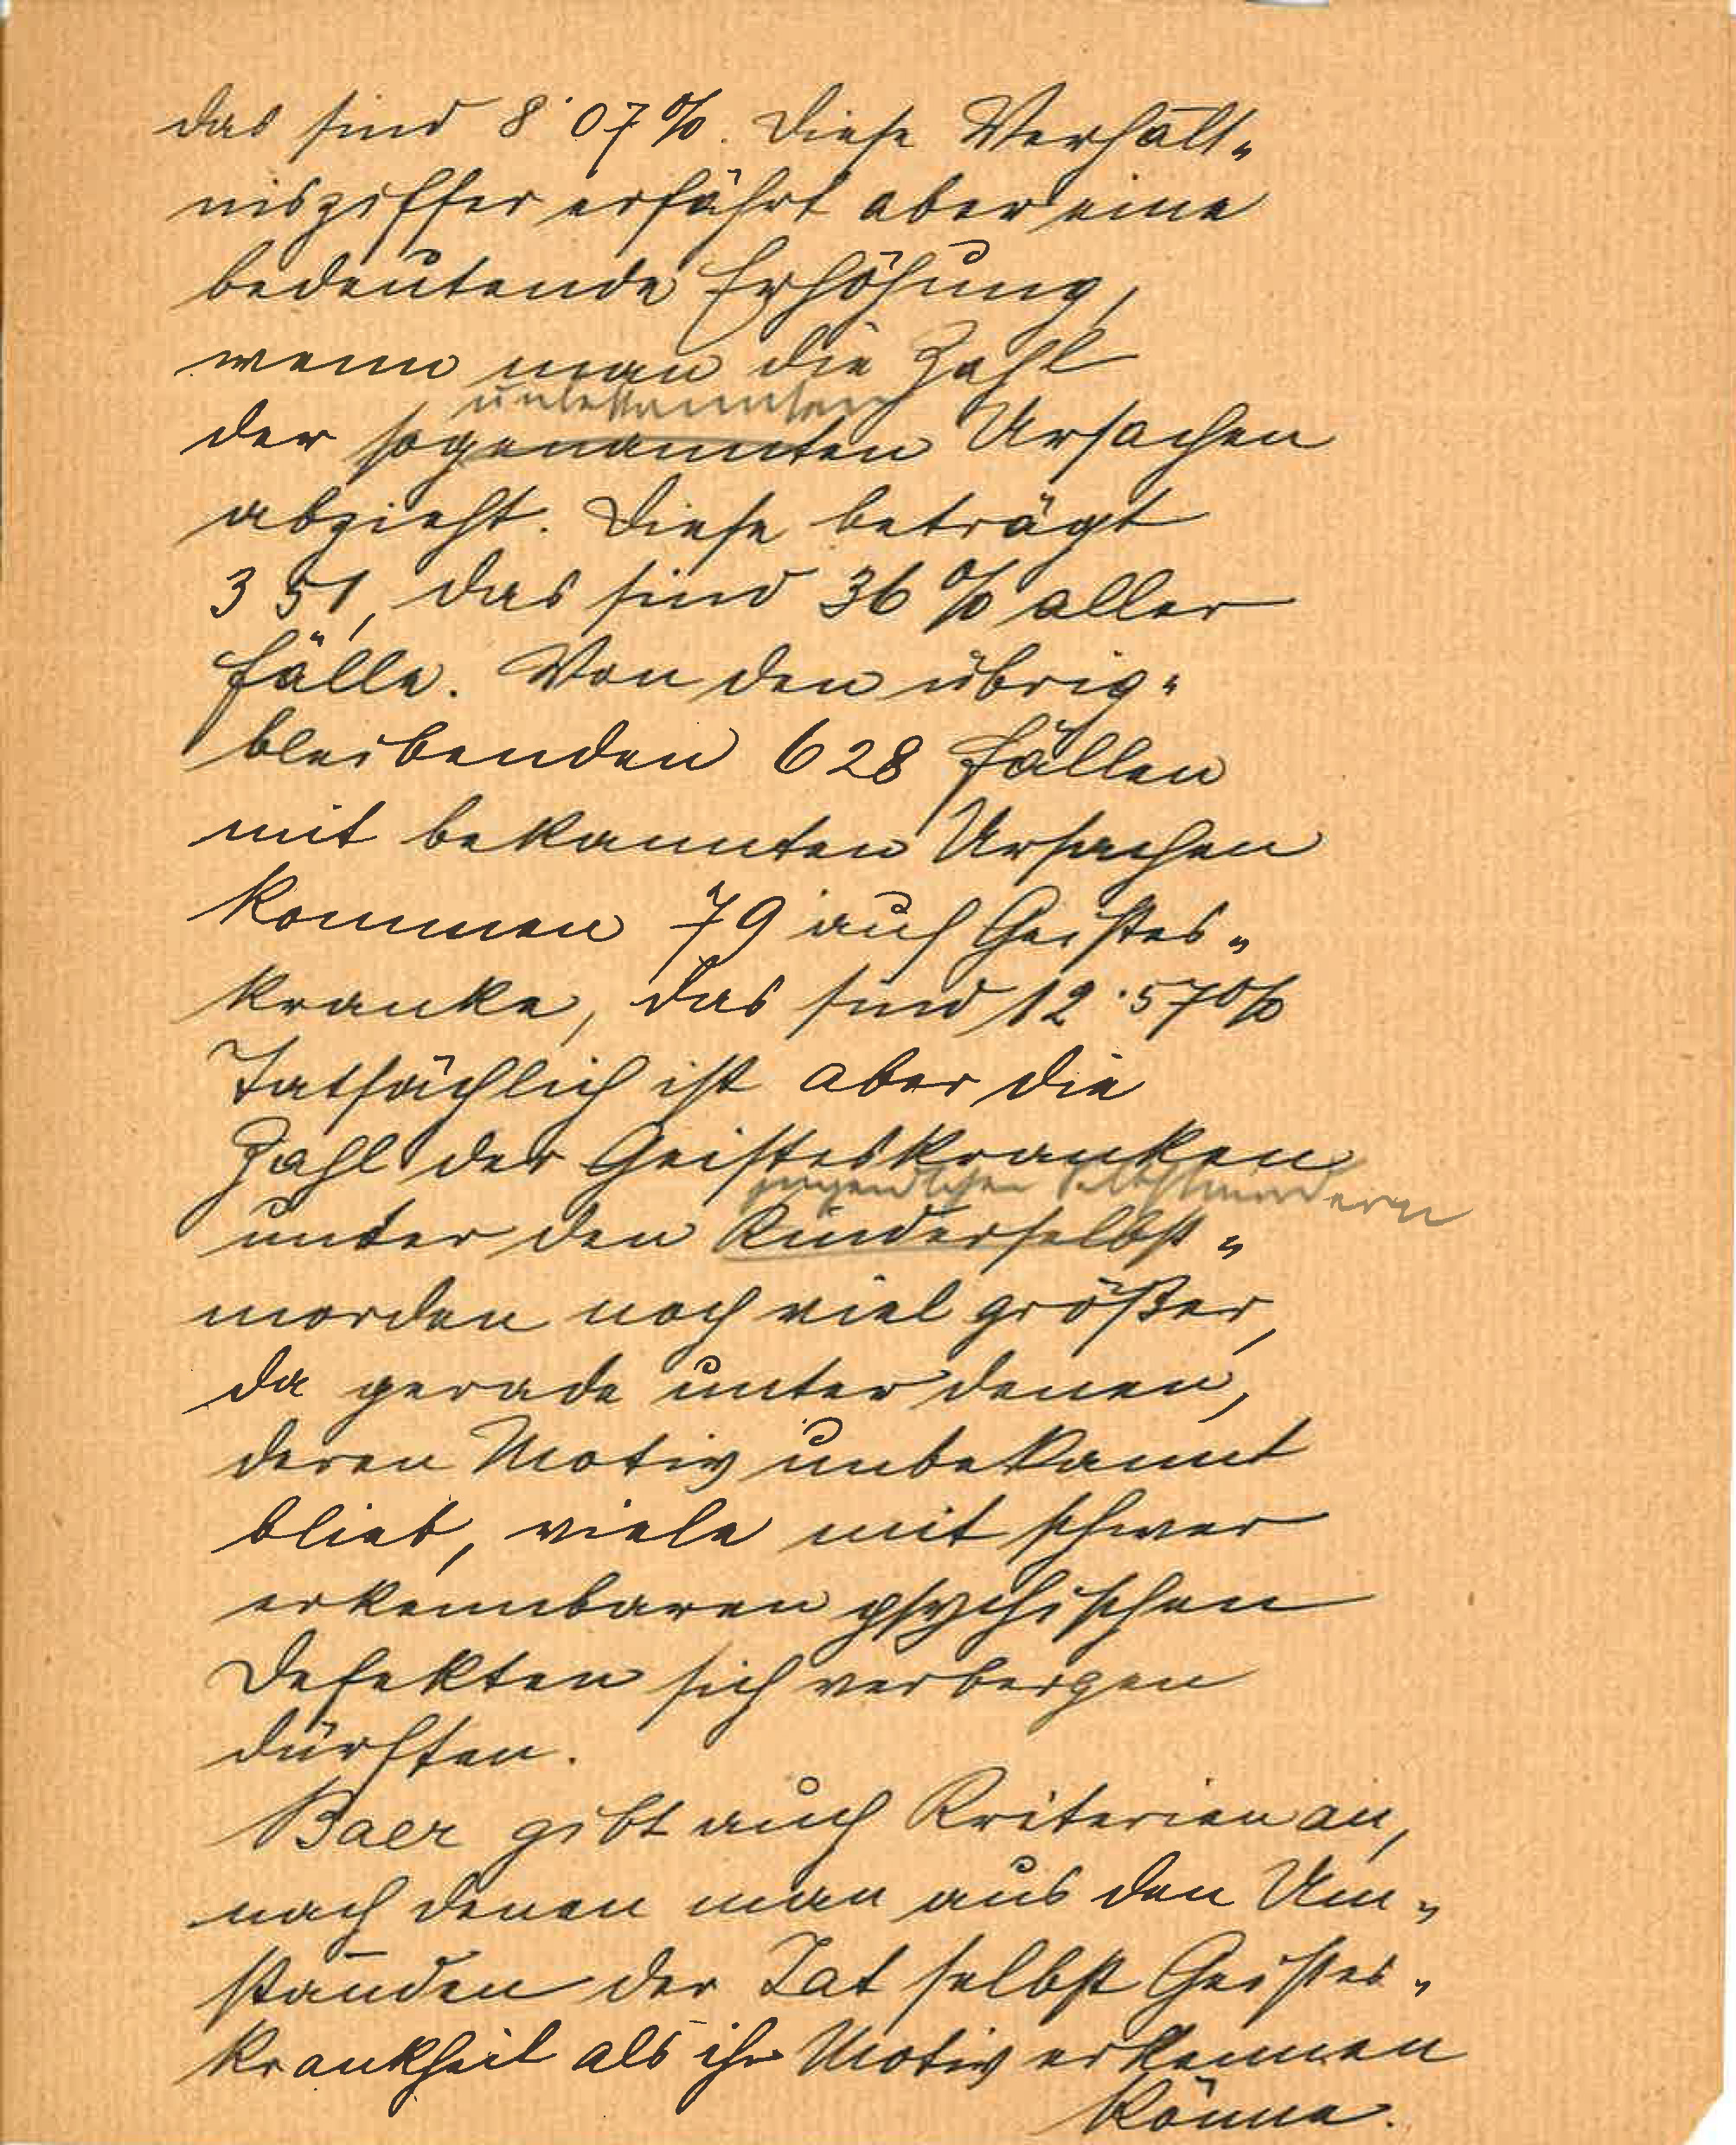 das sind 8·07%. Diese Verhält„
nisziffer erfährt aber eine
bedeutende Erhöhung,
wenn man die Zahl
unbekannten
der sogenannten Ursachen
abzieht. Diese beträgt
351, das sind 36% aller
Fälle. Von den übrig„
bleibenden 628 Fällen
mit bekannten Ursachen
kommen 79 auf Geistes„
kranke, das sind 12·57%
Tatsächlich ist aber die
Zahl der Geisteskranken
jugendlichen Selbstmördern
unter den Kinderselbst„
morden noch viel größer,
da gerade unter denen,
deren Motiv unbekannt
blieb, viele mit schwer
erkennbaren psychischen
Defekten sich verbergen
dürften.
Baer gibt auch Kriterien an,
nach denen man aus den Um„
ständen der Tat selbst Geistes„
krankheit als ihr Motiv erkennen
könne.